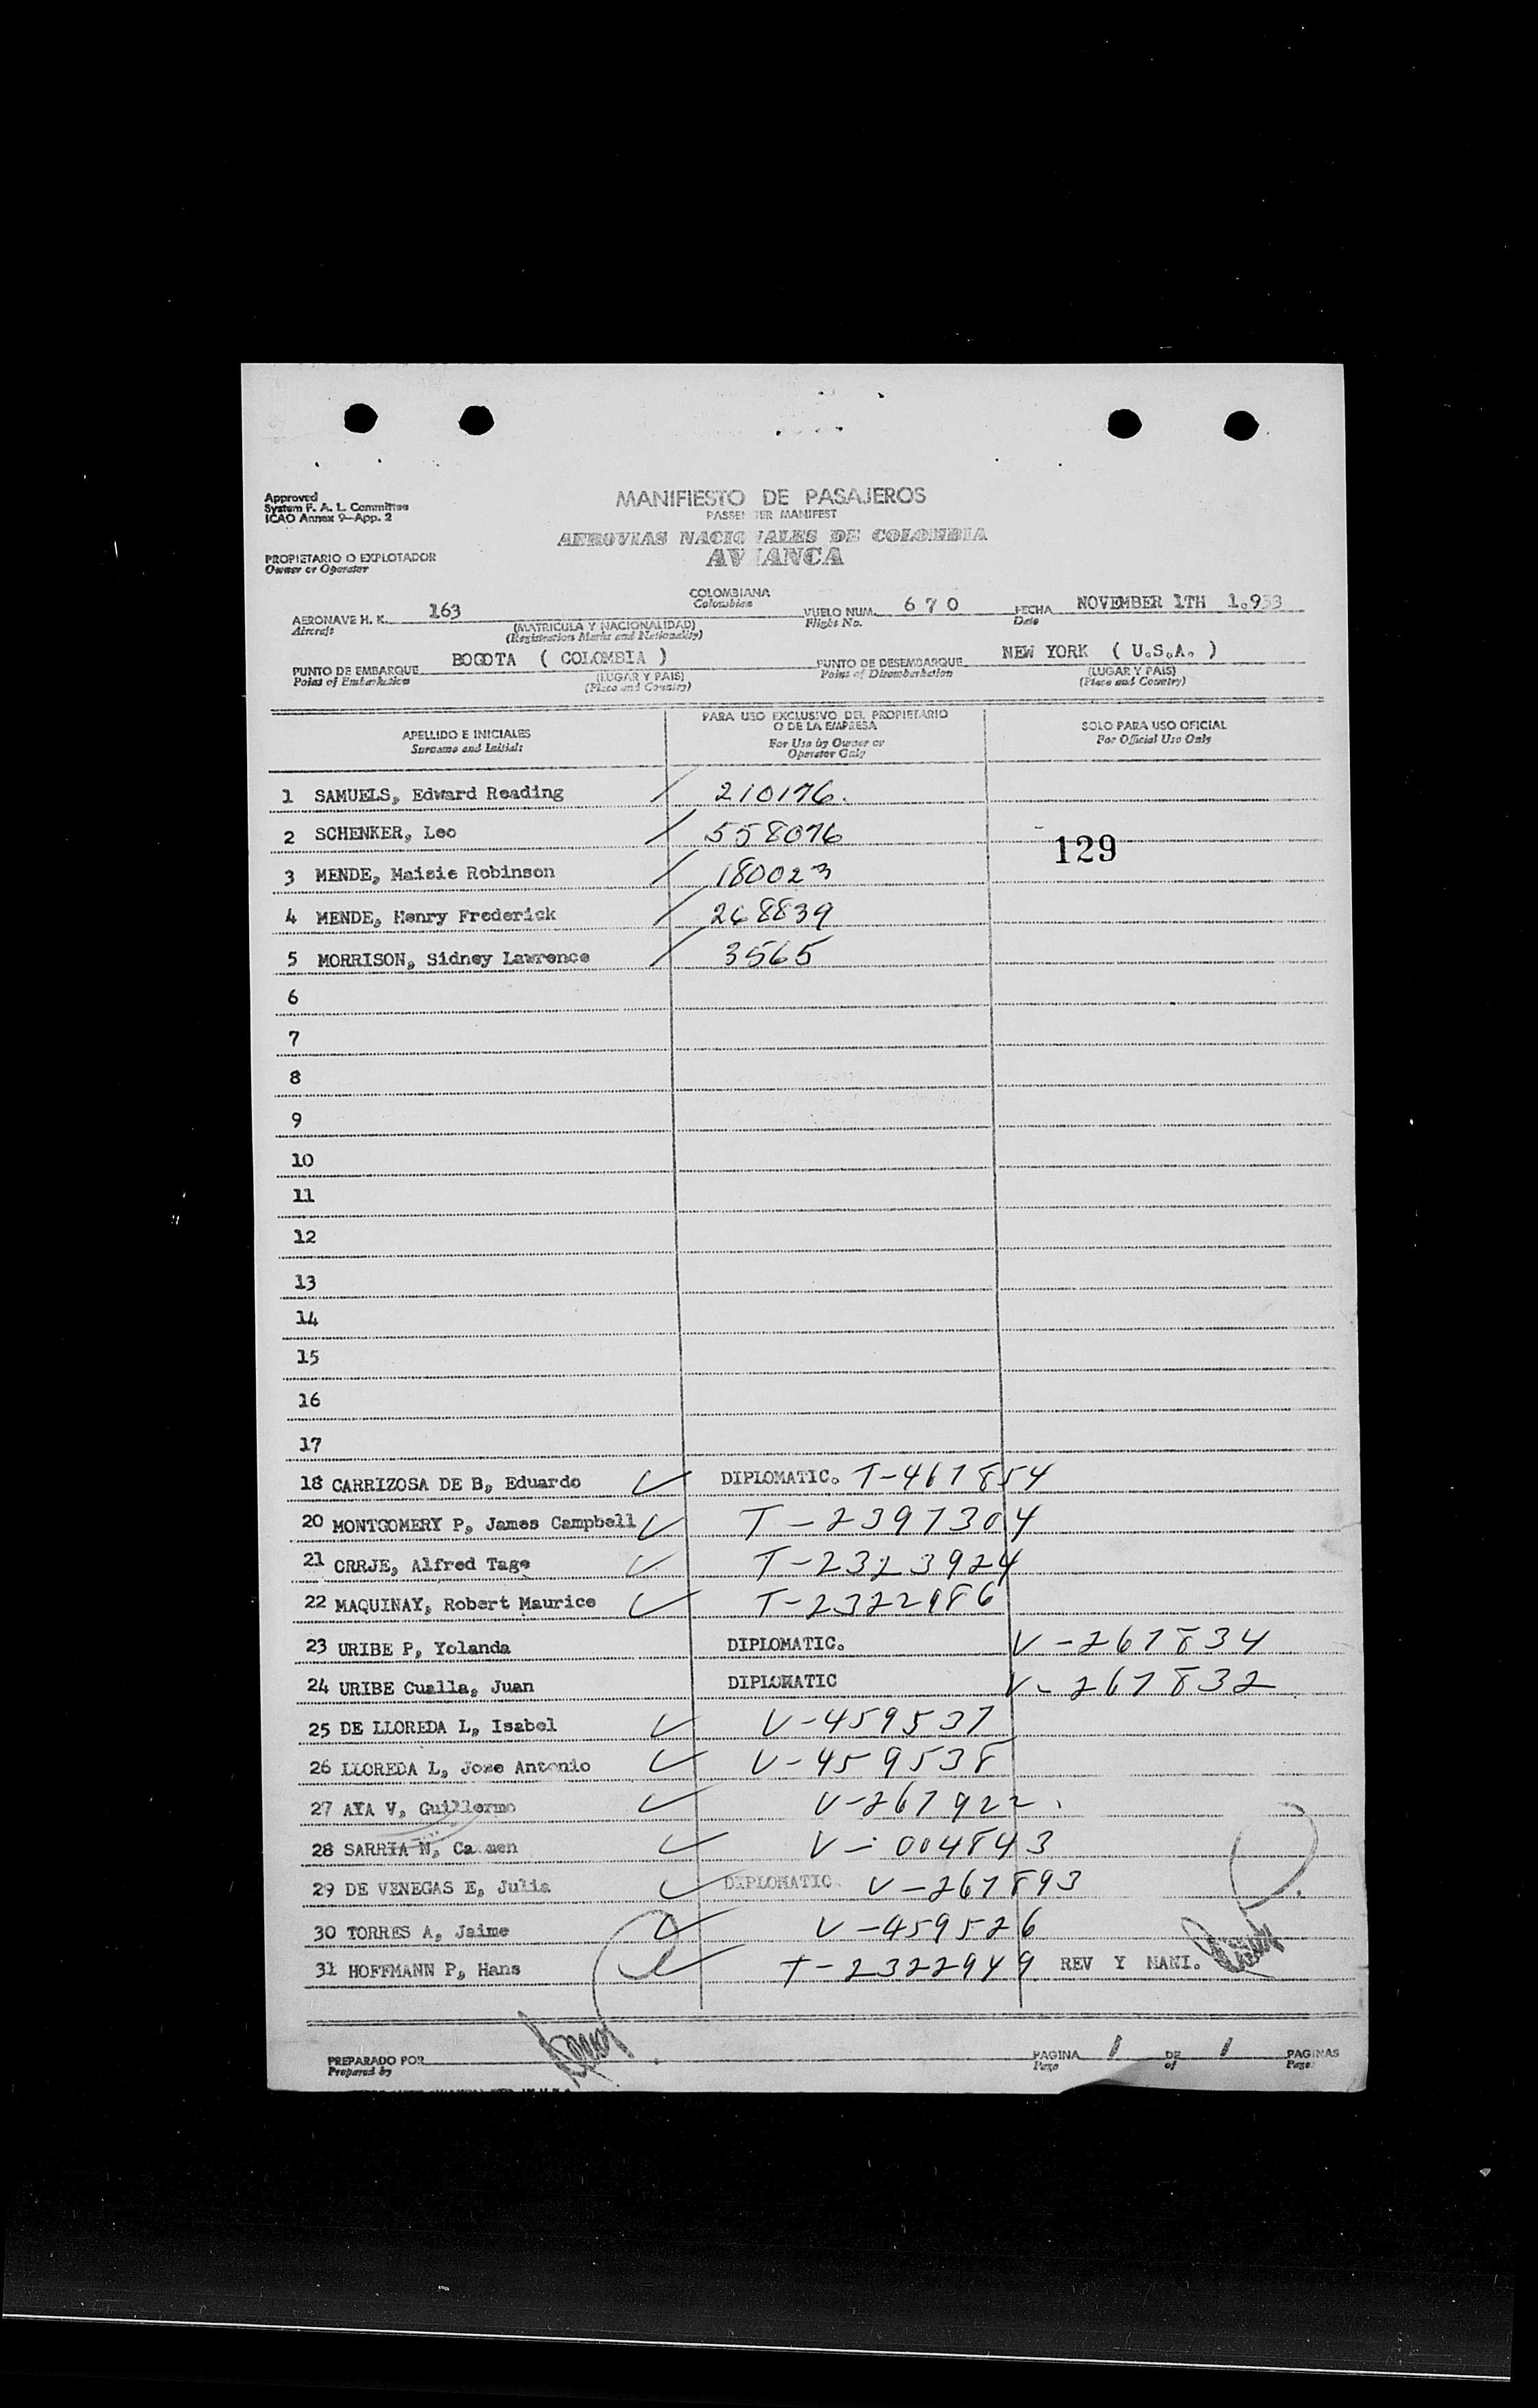 Approved
System F. A. L. Committee
ICAO Annex 9—App. 2
MANIFIESTO DE PASAJEROS
PASSENGER MANIFEST
AEROVIAS NACIONALES DE COLOMBIA
AVIANCA
PROPIETARIO O EXPLOTADOR
Owner or Operator
COLOMBIANA
Colombian
AERONAVE H. K. 163
Aircraft
(MATRICULA Y NACIONALIDAD)
(Registration Marks and Nationality)
VUELO NUM. 6 7 0
Flight No.
FECHA NOVEMBER 1TH 1.953
Date
PUNTO DE EMBARQUE BOGOTA ( COLOMBIA )
Point of Embarkation
(LUGAR Y PAIS)
(Place and Country)
PUNTO DE DESEMBARQUE NEW YORK ( U.S.A. )
Point of Disembarkation
(LUGAR Y PAIS)
(Place and Country)
APELLIDO E INICIALES
Surname and Initials
PARA USO EXCLUSIVO DEL PROPIETARIO
O DE LA EMPRESA
For Use by Owner or
Operator Only
SOLO PARA USO OFICIAL
For Official Use Only
1 SAMUELS, Edward Reading / 210176.
2 SCHENKER, Leo / 558076
129
3 MENDE, Maisie Robinson / 180023
4 MENDE, Henry Frederick / 268839
5 MORRISON, Sidney Lawrence / 3565
6
7
8
9
10
11
12
13
14
15
16
17
18 CARRIZOSA DE B, Eduardo ✓ DIPLOMATIC. T-467854
20 MONTGOMERY P, James Campbell ✓ T-2397304
21 CRRJE, Alfred Tage ✓ T-2323924
22 MAQUINAY, Robert Maurice ✓ T-2322986
23 URIBE P, Yolanda DIPLOMATIC. V-267834
24 URIBE Cualla, Juan DIPLOMATIC V-267832
25 DE LLOREDA L, Isabel ✓ V-459537
26 LLOREDA L, Jose Antonio ✓ V-459538
27 AYA V, Guillermo ✓ V-267922.
28 SARRIA N, Carmen ✓ V-004843
29 DE VENEGAS E, Julia ✓ DIPLOMATIC. V-267893
30 TORRES A, Jaime ✓ V-459526
31 HOFFMANN P, Hans ✓ T-2322949 REV Y MANI.
PREPARADO POR
Prepared by
PAGINA 1 DE 1 PAGINAS
Page of Pages